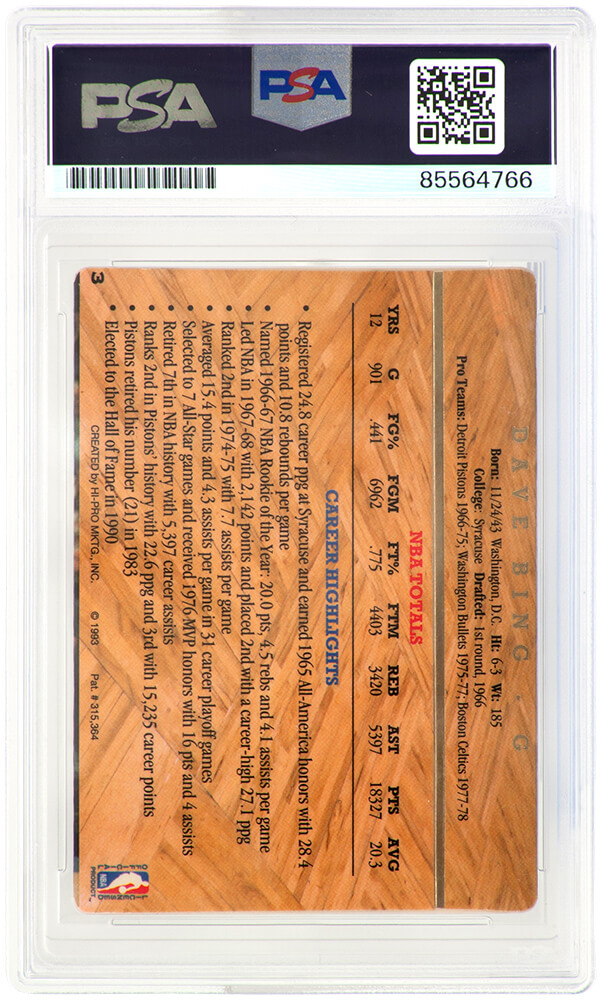 PSA
PSA
85564766
3
DAVE BING - G
Born: 11/24/43 Washington, D.C. Ht: 6-3 Wt: 185
College: Syracuse Drafted: 1st round, 1966
Pro Teams: Detroit Pistons 1966-75; Washington Bullets 1975-77; Boston Celtics 1977-78
NBA TOTALS
YRS G FG% FGM FT% FTM REB AST PTS AVG
12 901 .441 6962 .775 4403 3420 5397 18327 20.3
CAREER HIGHLIGHTS
• Registered 24.8 career ppg at Syracuse and earned 1965 All-America honors with 28.4
points and 10.8 rebounds per game
• Named 1966-67 NBA Rookie of the Year: 20.0 pts, 4.5 rebs and 4.1 assists per game
• Led NBA in 1967-68 with 2,142 points and placed 2nd with a career-high 27.1 ppg
• Ranked 2nd in 1974-75 with 7.7 assists per game
• Averaged 15.4 points and 4.3 assists per game in 31 career playoff games
• Selected to 7 All-Star games and received 1976 MVP honors with 16 pts and 4 assists
• Retired 7th in NBA history with 5,397 career assists
• Ranks 2nd in Pistons' history with 22.6 ppg and 3rd with 15,235 career points
• Pistons retired his number (21) in 1983
• Elected to the Hall of Fame in 1990
CREATED by HI-PRO MKTG., INC. © 1993 Pat. # 315,364
OFFICIAL LICENSED
NBA
PRODUCT